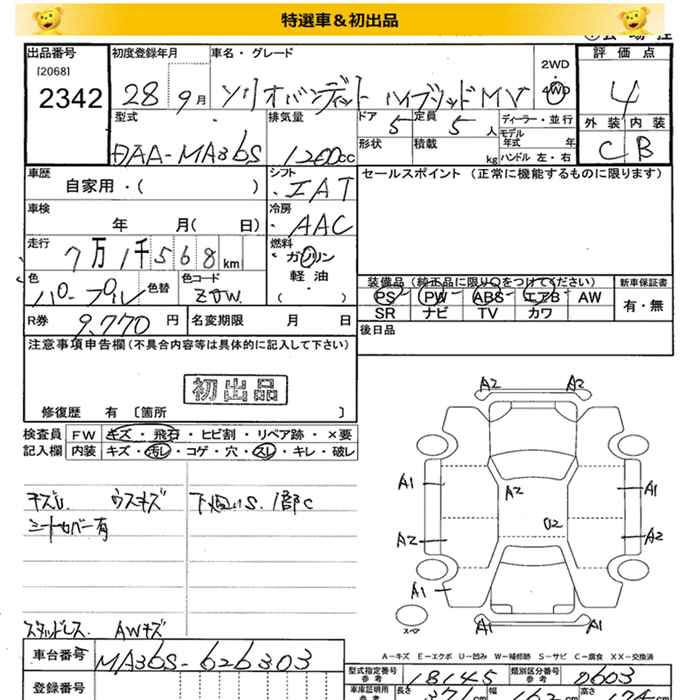 特選車＆初出品
出品番号
[2068]
2342
初度登録年月
28 9月
車名・グレード
ソリオバンディット ハイブリッドMV
2WD
4WD
評価点
4
型式
DAA-MA36S
排気量
1200cc
ドア 5
定員 5 人
ディーラー・並行
形状
積載 kg
モデル年式 年
ハンドル 左・右
外装 内装
C B
車歴
自家用・( )
シフト
IAT
セールスポイント (正常に機能するものに限ります)
車検
年 月( 日)
冷房
AAC
走行
7万1千568km
燃料
ガソリン
軽油
( )
色
パープル
色替
色コード
ZJW
装備品 (純正品に限り○をつけてください)
新車保証書
PS PW ABS エアB AW
有・無
SR ナビ TV カワ
R券 9,770 円
名変期限 月 日
後日品
注意事項申告欄(不具合内容等は具体的に記入して下さい)
初出品
修復歴 有 〔箇所 〕
検査員記入欄
FW キズ・飛石・ヒビ割・リペア跡・×要
内装 キズ・汚レ・コゲ・穴・スレ・キレ・破レ
キズU ウスキズ
シートカバー有
下廻りS.1部C
スタッドレス. AWキズ
A2 A2
A1 A1
A2
U2
A2 A2
A1
A1 A1
スペア
A－キズ E－エクボ U－凹み W－補修跡 S－サビ C－腐食 XX－交換済
車台番号
MA36S-626303
型式指定番号 参考
18145
類別区分番号 参考
0603
登録番号
車庫証明用 参考
長さ 371 cm
幅
高さ